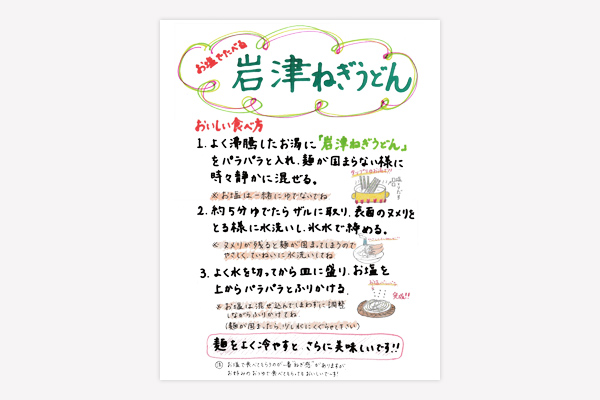 お塩でたべる
岩津ねぎうどん
おいしい食べ方
1. よく沸騰したお湯に「岩津ねぎうどん」
をパラパラと入れ、麺が固まらない様に
時々静かに混ぜる。
※お塩は一緒にゆでないでね
2. 約5分ゆでたらザルに取り、表面のヌメリを
とる様に水洗いし、氷水で締める。
※ヌメリが残ると麺が固まってしまうので
やさしく、ていねいに水洗いしてね
3. よく水を切ってから皿に盛り、お塩を
上からパラパラとふりかける。
完成!!
※お塩は混ぜ込んでしまわずに調整
しながらふりかけてね
(麺が固まったら、少し水にくぐらせて下さい)
麺をよく冷やすと、さらに美味しいです!!
お塩で食べてもらうのが一番"ねぎ感"がありますが
お好みのおつゆで食べてもらってもおいしいでーす!